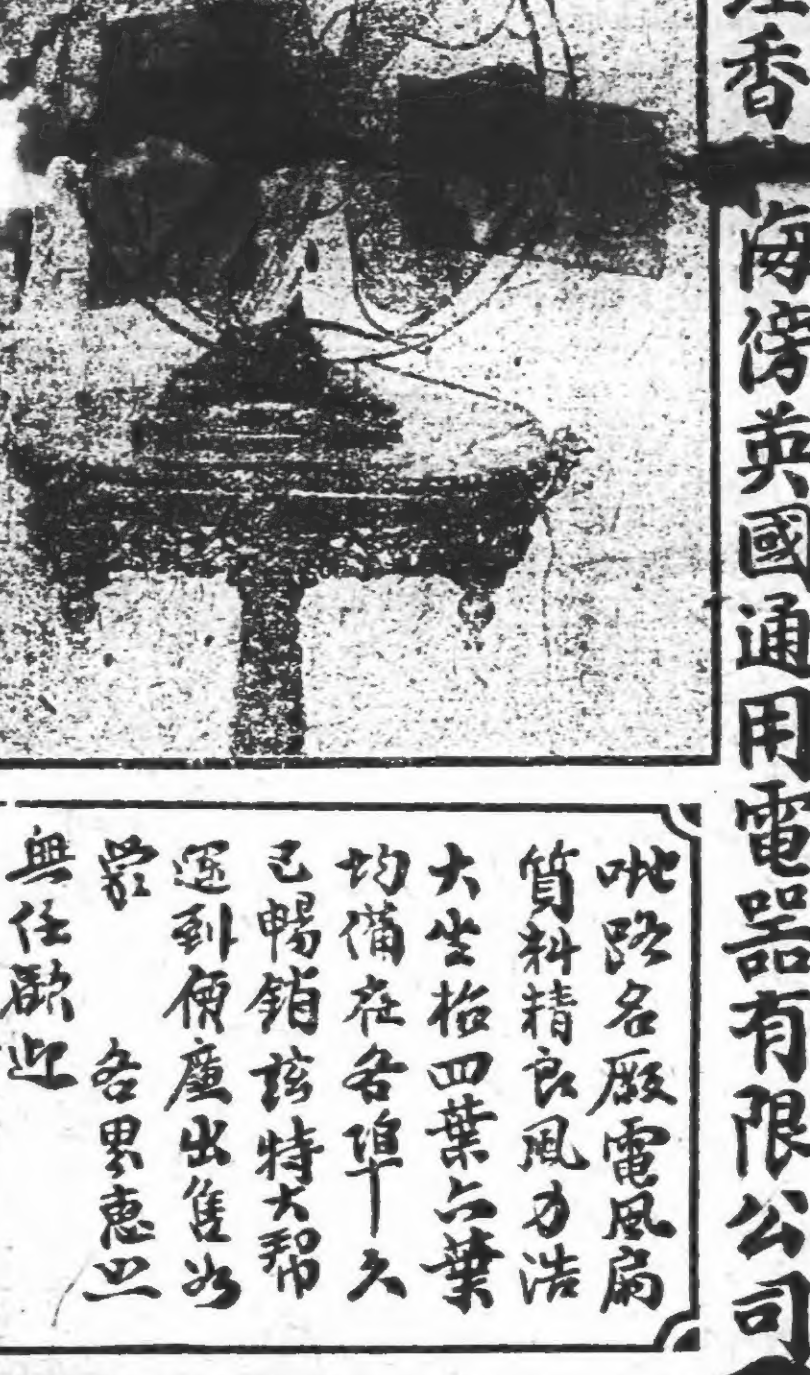 香
海傍英國通用電器有限公司
吡路名廠電風扇
質料精良風力浩
大坐枱四葉六葉
均備在各埠久
已暢銷茲特大幫
運到價廉出售如
蒙　各界惠
無任歡迎